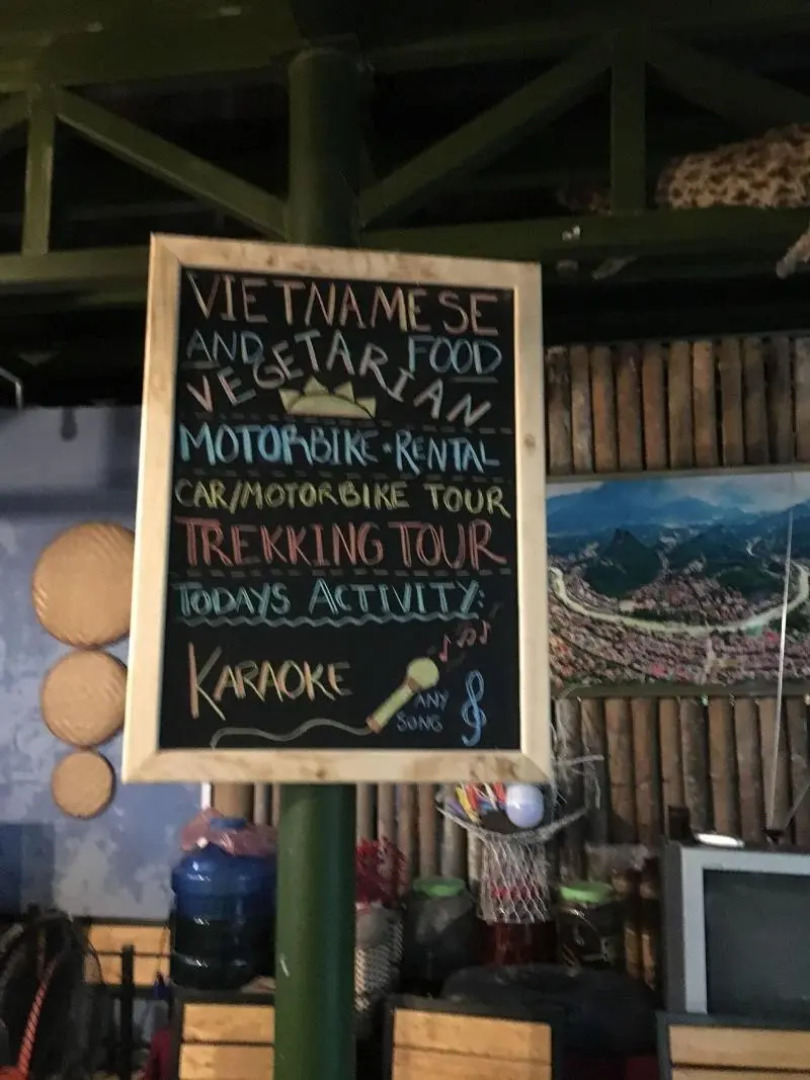 VIETNAMESE
AND FOOD
VEGETARIAN
MOTORBIKE-RENTAL
CAR/MOTORBIKE TOUR
TREKKING TOUR
TODAYS ACTIVITY:
KARAOKE
ANY
SONG